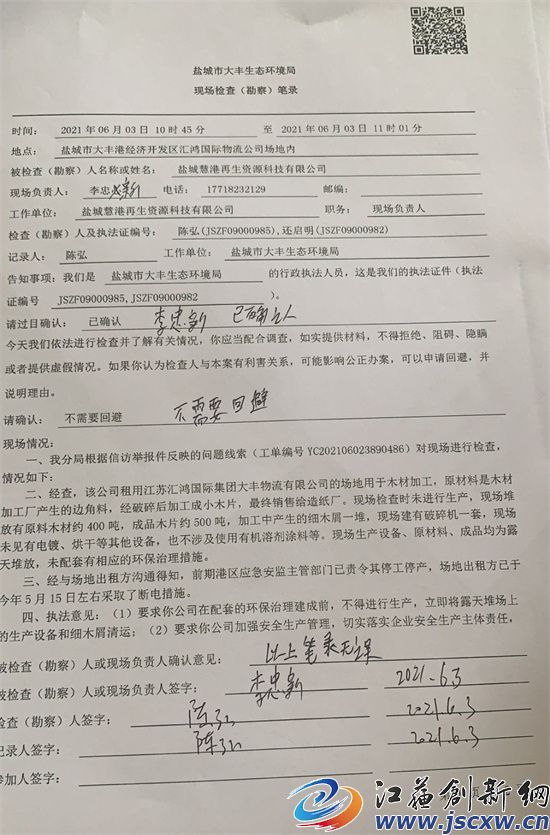 盐城市大丰生态环境局
现场检查（勘察）笔录
时间： 2021 年 06 月 03 日 10 时 45 分 至 2021 年 06 月 03 日 11 时 01 分
地点： 盐城市大丰港经济开发区汇鸿国际物流公司场地内
被检查（勘察）人名称或姓名： 盐城慧港再生资源科技有限公司
现场负责人： 李忠新 电话： 17718232129 邮编：
工作单位： 盐城慧港再生资源科技有限公司 职务： 现场负责人
检查（勘察）人及执法证编号： 陈弘(JSZF09000985),还启明(JSZF09000982)
记录人： 陈弘 工作单位： 盐城市大丰生态环境局
告知事项：我们是 盐城市大丰生态环境局 的行政执法人员，这是我们的执法证件（执法
证编号 JSZF09000985,JSZF09000982 ）。
请过目确认： 已确认 李忠新 已确认
今天我们依法进行检查并了解有关情况，你应当配合调查，如实提供材料，不得拒绝、阻碍、隐瞒
或者提供虚假情况。如果你认为检查人与本案有利害关系，可能影响公正办案，可以申请回避，并
说明理由。
请确认： 不需要回避 不需要回避
现场情况：
一、我分局根据信访举报件反映的问题线索（工单编号 YC202106023890486）对现场进行检查，
情况如下：
二、经查，该公司租用江苏汇鸿国际集团大丰物流有限公司的场地用于木材加工，原材料是木材
加工厂产生的边角料，经破碎后加工成小木片，最终销售给造纸厂。现场检查时未进行生产，现场堆
放有原料木材约 400 吨，成品木片约 500 吨，加工中产生的细木屑一堆，现场建有破碎机一套，现场
未见有电镀、烘干等其他设备，也不涉及使用有机溶剂涂料等。现场生产设备、原材料、成品均为露
天堆放，未配套有相应的环保治理措施。
三、经与场地出租方沟通得知，前期港区应急安监主管部门已责令其停工停产，场地出租方已于
今年 5 月 15 日左右采取了断电措施。
四、执法意见：（1）要求你公司在配套的环保治理建成前，不得进行生产，立即将露天堆场上
的生产设备和细木屑清运；（2）要求你公司加强安全生产管理，切实落实企业安全生产主体责任，
被检查（勘察）人或现场负责人确认意见： 以上笔录无误
被检查（勘察）人或现场负责人签字： 李忠新 2021.6.3
检查（勘察）人签字： 陈弘 2021.6.3
记录人签字： 陈弘 2021.6.3
参加人签字：
江苏创新网
www.jscxw.cn